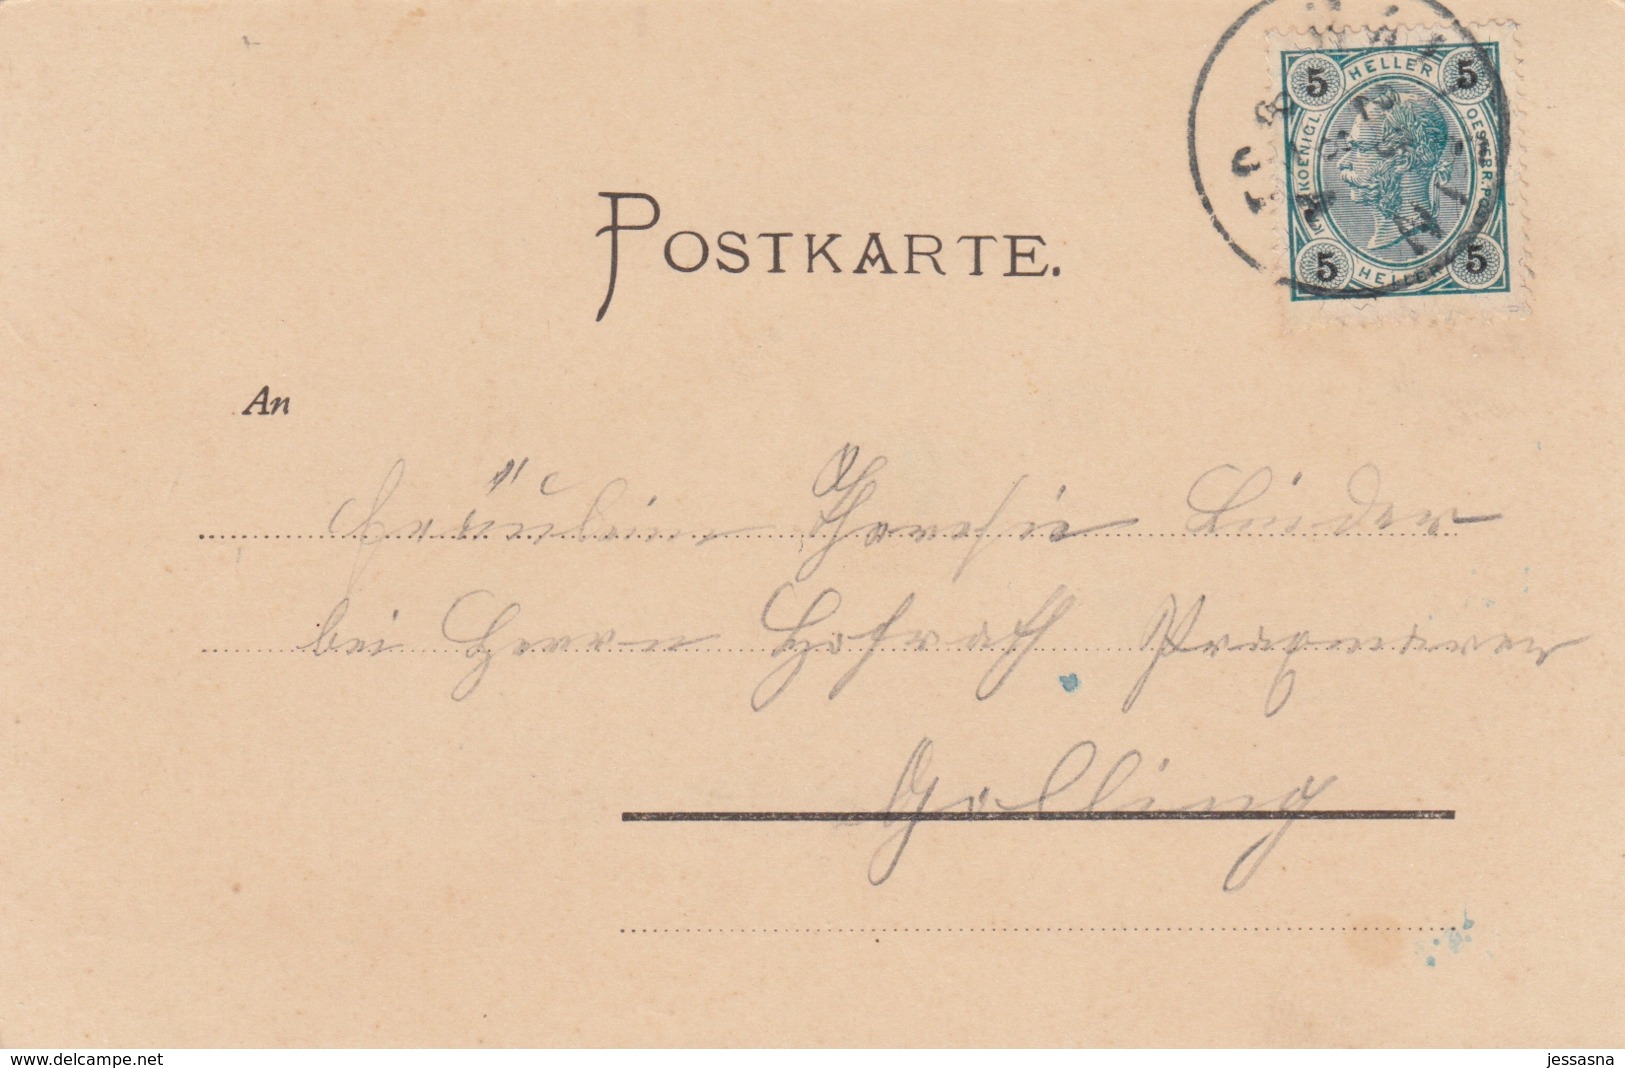 5 HELLER 5
KAIS. KOENIGL. OESTERR. POST
5 HELLER 5
POSTKARTE.
An
Fräulein Theresie Linder
bei Herrn Hofrath
Golling
www.delcampe.net
jessasna